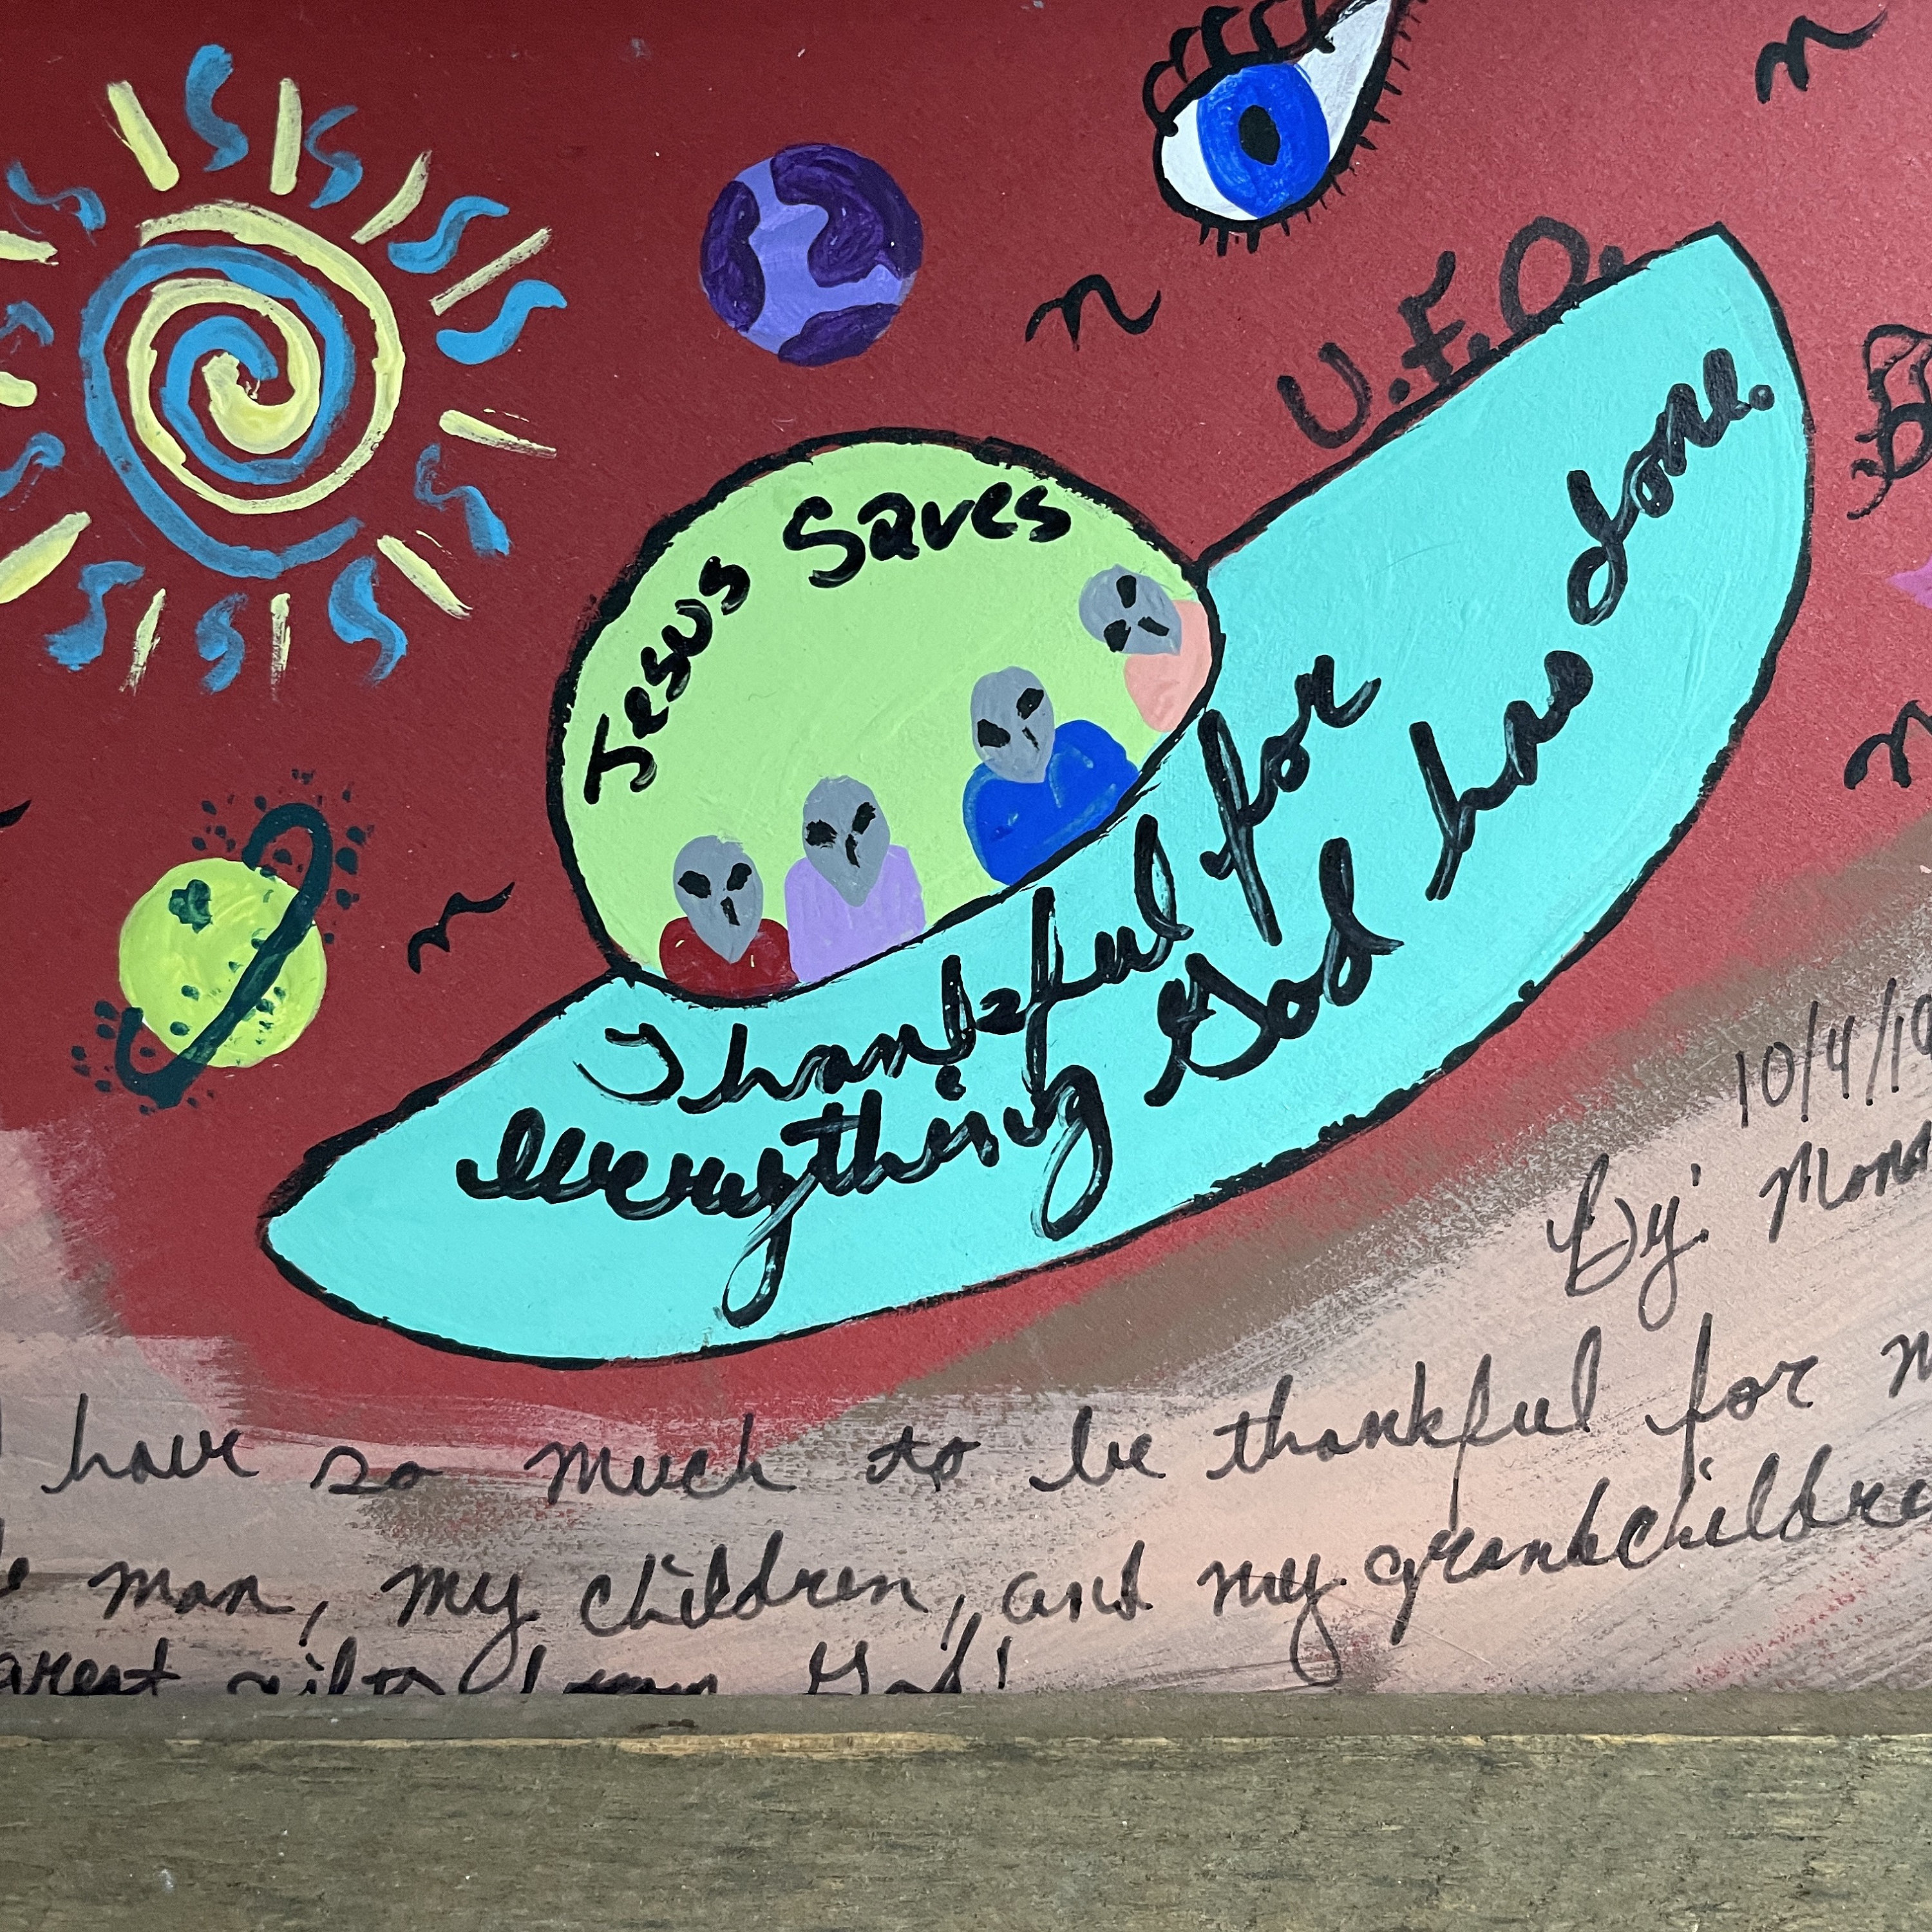 U.F.O.
Jesus Saves
Thankful for
everything God has done.
10/4/1
By: Mona
have so much to be thankful for m
man, my children, and my grandchildre
God!